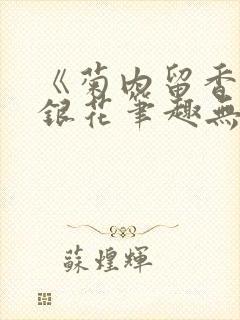 《菊内留香
銀花筆趣無
蘇煌輝